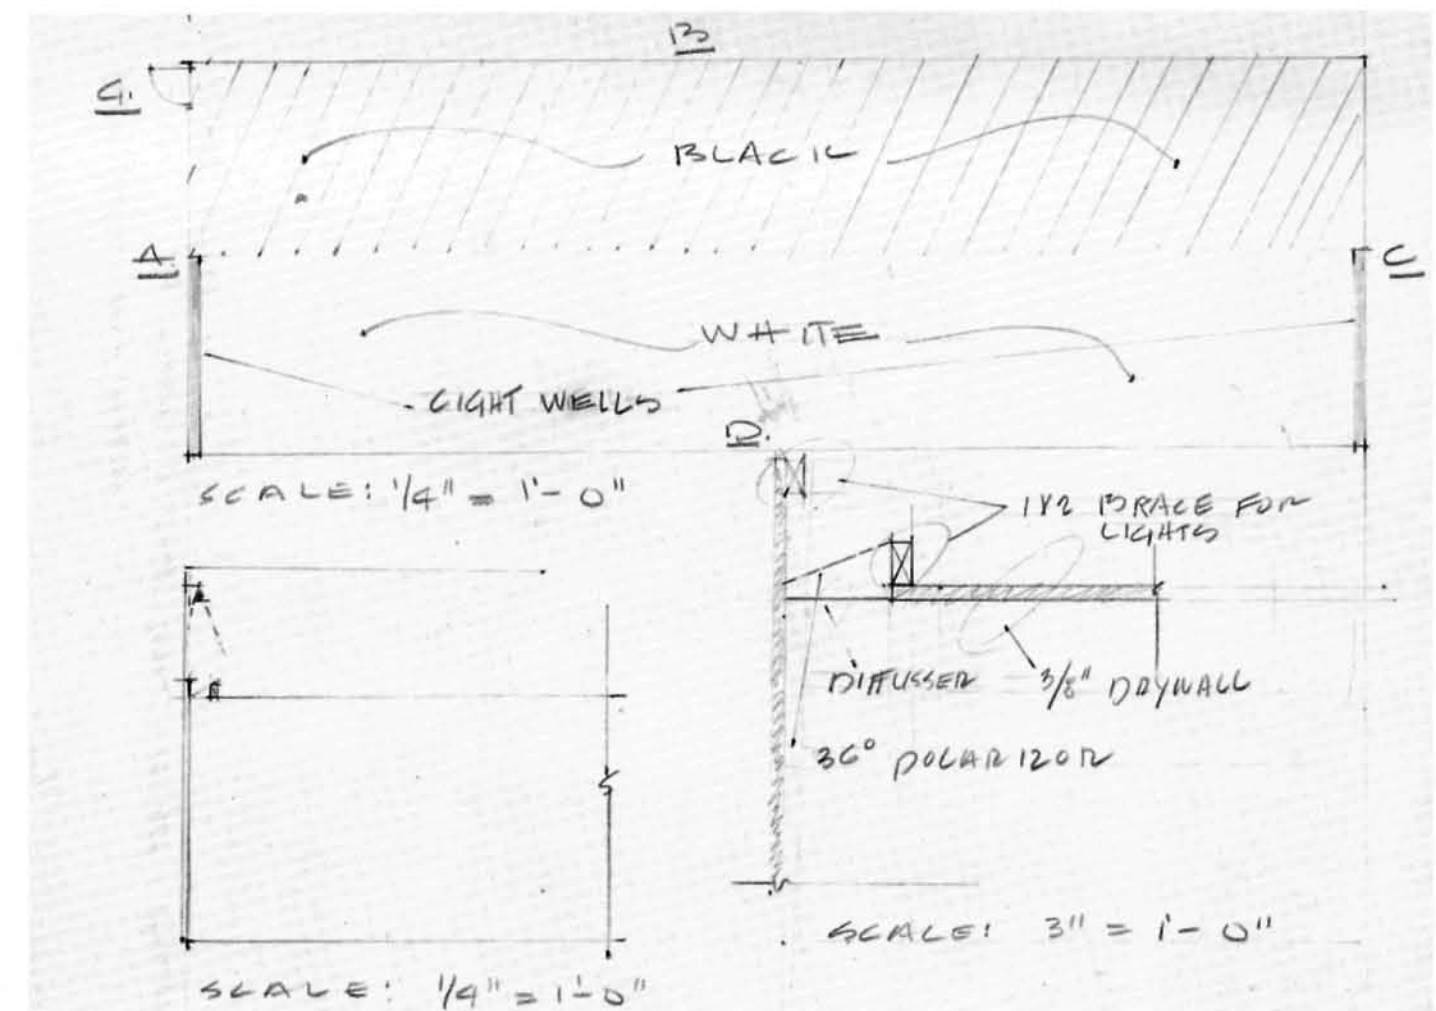 B
G.
BLACK
A.
C
WHITE
LIGHT WELLS
D.
SCALE: 1/4" = 1'-0"
1X2 BRACE FOR
LIGHTS
DIFFUSSER
3/8" DRYWALL
36° POLARIZOR
SCALE: 3" = 1'-0"
SCALE: 1/4" = 1'-0"